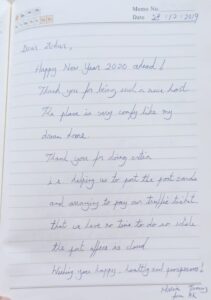 Memo No.
Date 28 / 12 / 2019
Dear
Happy New Year 2020 ahead!
Thank you for being such a nice host
The place is very comfy like my
own home.
Thank you for doing extra
i.e. helping us to post the post cards
and arranging to pay our traffic ticket
that we have no time to do so while
the post office is closed
Wishing you happy, healthy and prosperous!
from HK